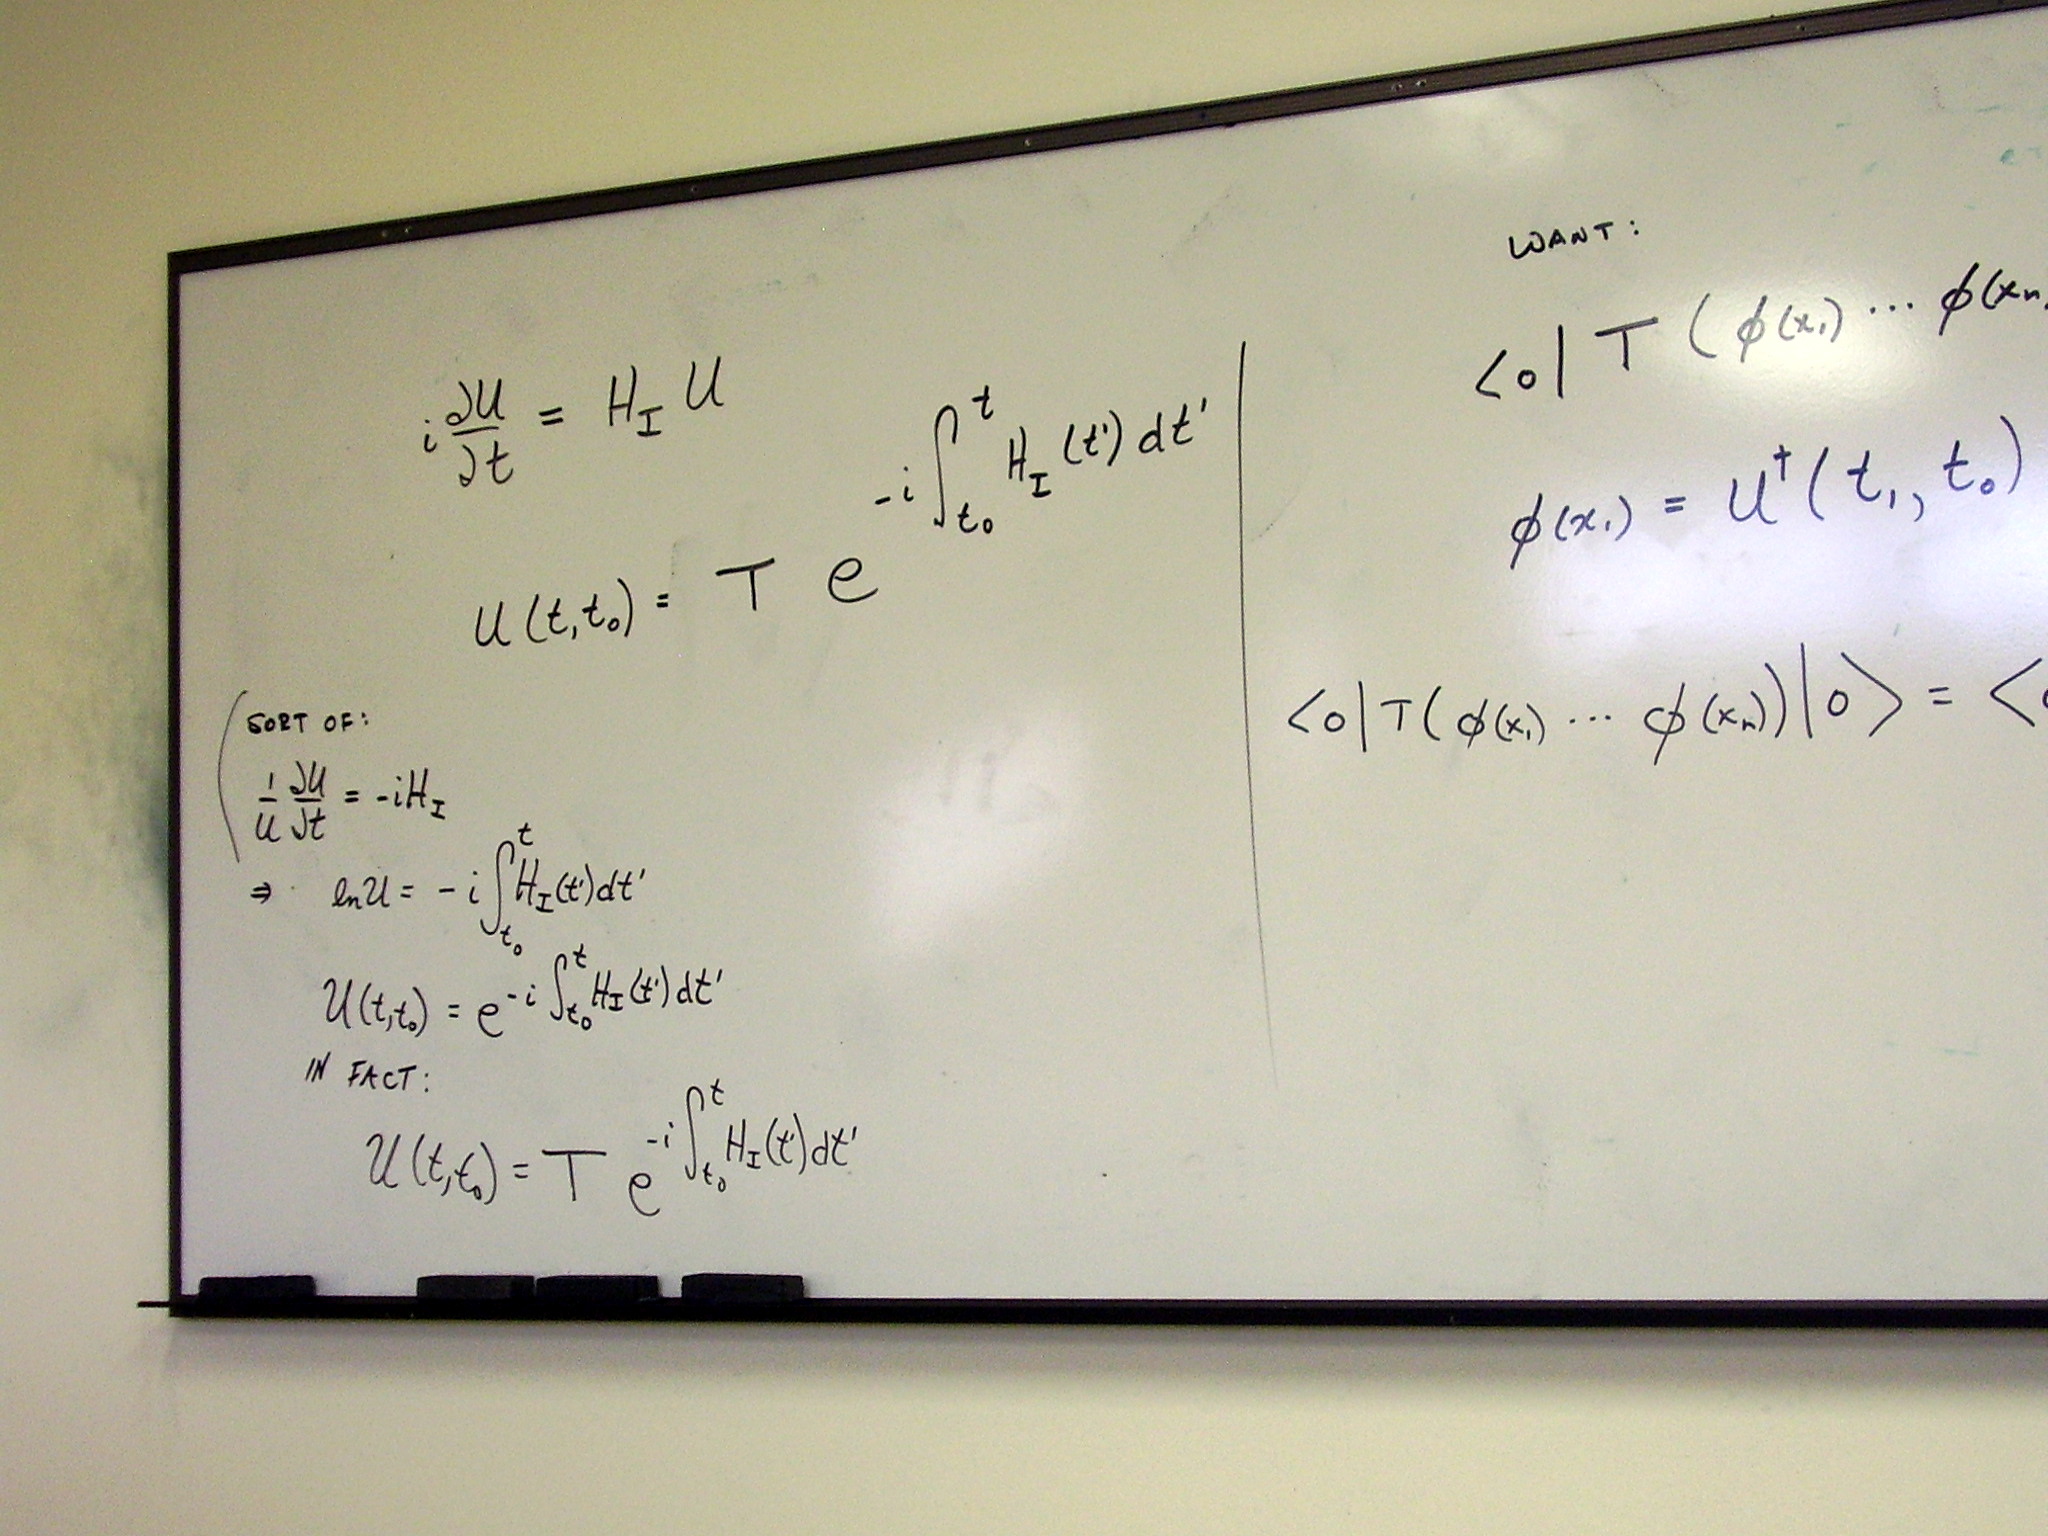 i ∂U/∂t = H_I U
U(t,t₀) = T e^{-i ∫_{t₀}^{t} H_I(t') dt'}
( SORT OF:
1/U ∂U/∂t = -iH_I
⇒ ln U = -i ∫_{t₀}^{t} H_I(t') dt'
U(t,t₀) = e^{-i ∫_{t₀}^{t} H_I(t') dt'}
IN FACT:
U(t,t₀) = T e^{-i ∫_{t₀}^{t} H_I(t') dt'}
WANT:
<0| T (φ(x₁) ... φ(xₙ
φ(x₁) = U†(t₁, t₀)
<0|T(φ(x₁) ... φ(xₙ))|0> = <0